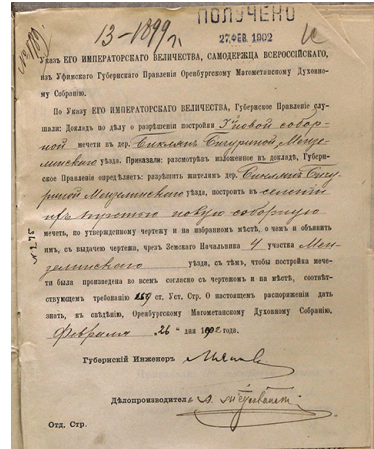 13-1899 г.
ПОЛУЧЕНО
27 ФЕВ. 1902
Указъ ЕГО ИМПЕРАТОРСКАГО ВЕЛИЧЕСТВА, САМОДЕРЖЦА ВСЕРОССІЙСКАГО,
изъ Уфимскаго Губернскаго Правленія Оренбургскому Магометанскому Духовно
му Собранію.
По Указу ЕГО ИМПЕРАТОРСКАГО ВЕЛИЧЕСТВА, Губернское Правленіе слу
шали: Докладъ по дѣлу о разрѣшеніи постройки новой собор
ной мечети въ дер. Мензе
линскаго уѣзда. Приказали: разсмотрѣвъ изложенное въ докладѣ, Губерн
ское Правленіе опредѣляетъ: разрѣшить жителямъ дер.
Мензелинскаго уѣзда, построить въ селеніи
новую соборную
мечеть, по утвержденному чертежу и на избранномъ мѣстѣ, о чемъ и объявить
имъ, съ выдачею чертежа, чрезъ Земскаго Начальника 4 участка Мен-
зелинскаго уѣзда, съ тѣмъ, чтобы постройка мече
ти была произведена во всемъ согласно съ чертежомъ и на мѣстѣ, соотвѣт
ствующемъ требованію ст. Уст. Стр. О настоящемъ распоряженіи дать
знать, къ свѣдѣнію, Оренбургскому Магометанскому Духовному Собранію.
Февраля „26" дня 1902 года.
Губернскій Инженеръ
Дѣлопроизводитель
Отд. Стр.